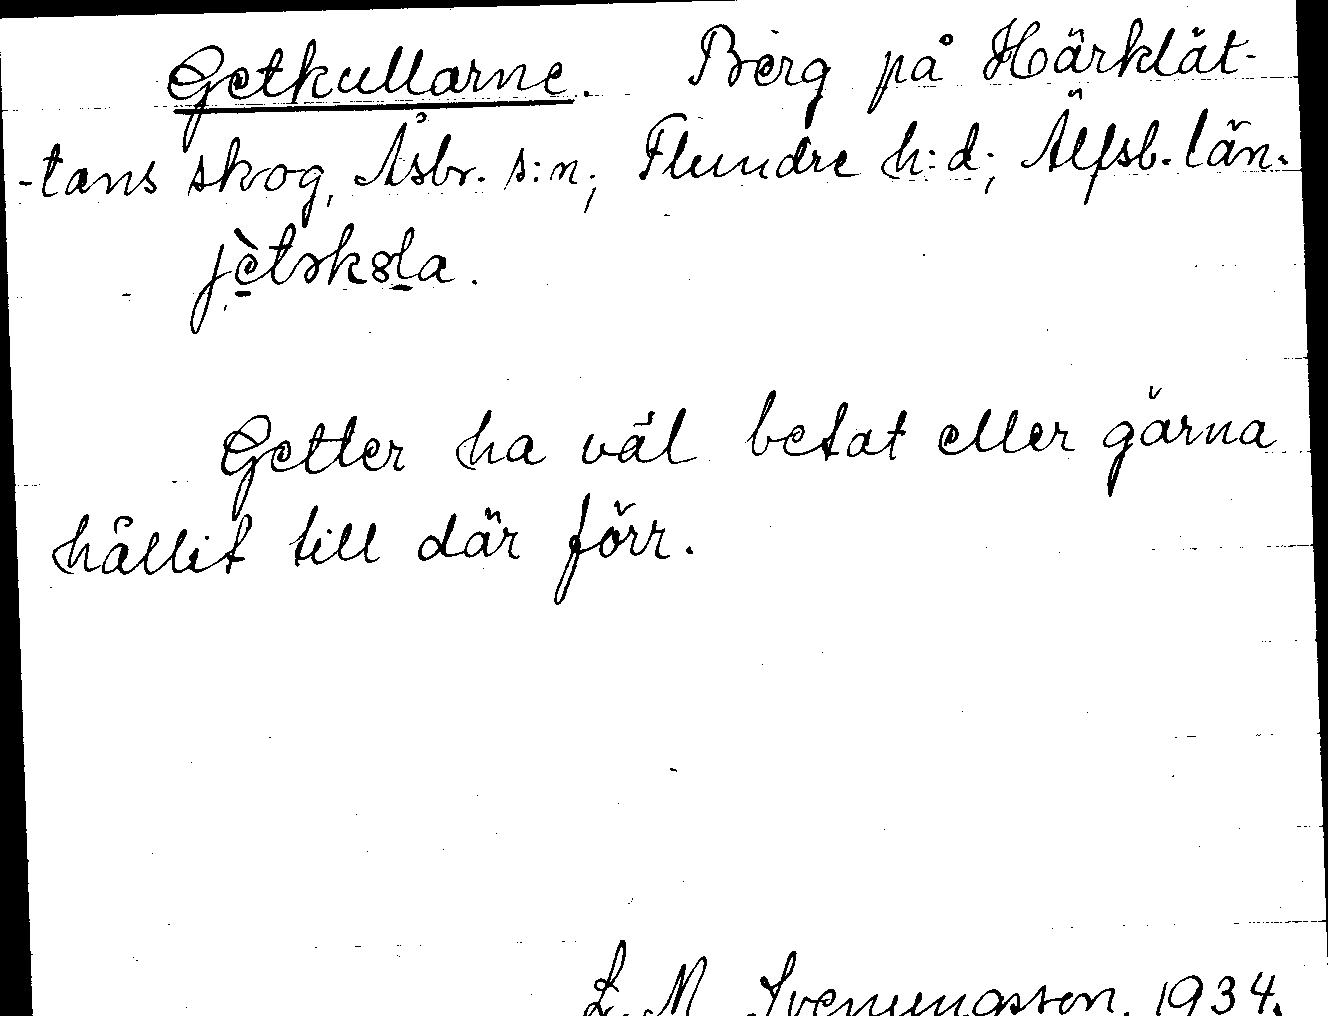 Getkullarne. Berg på Härklät-
-tans skog, Åsbr. s:n; Flundre h:d; Älfsb. län.
jètskɞla.
Getter ha väl betat eller gärna
hållit till där förr.
L. M. Svenungsson. 1934.